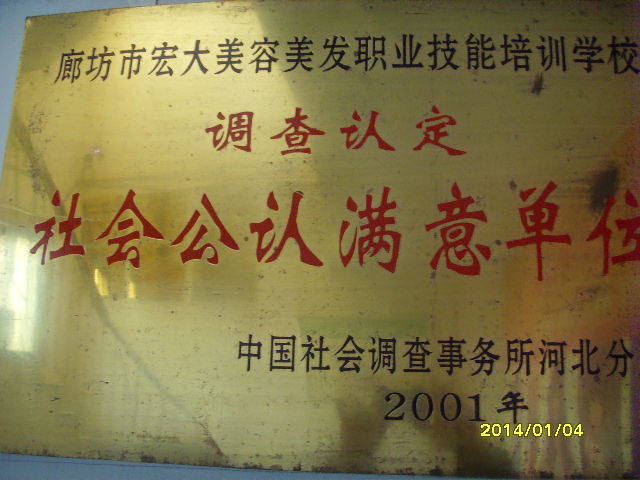 廊坊市宏大美容美发职业技能培训学校
调查认定
社会公认满意单位
中国社会调查事务所河北分
2001年
2014/01/04